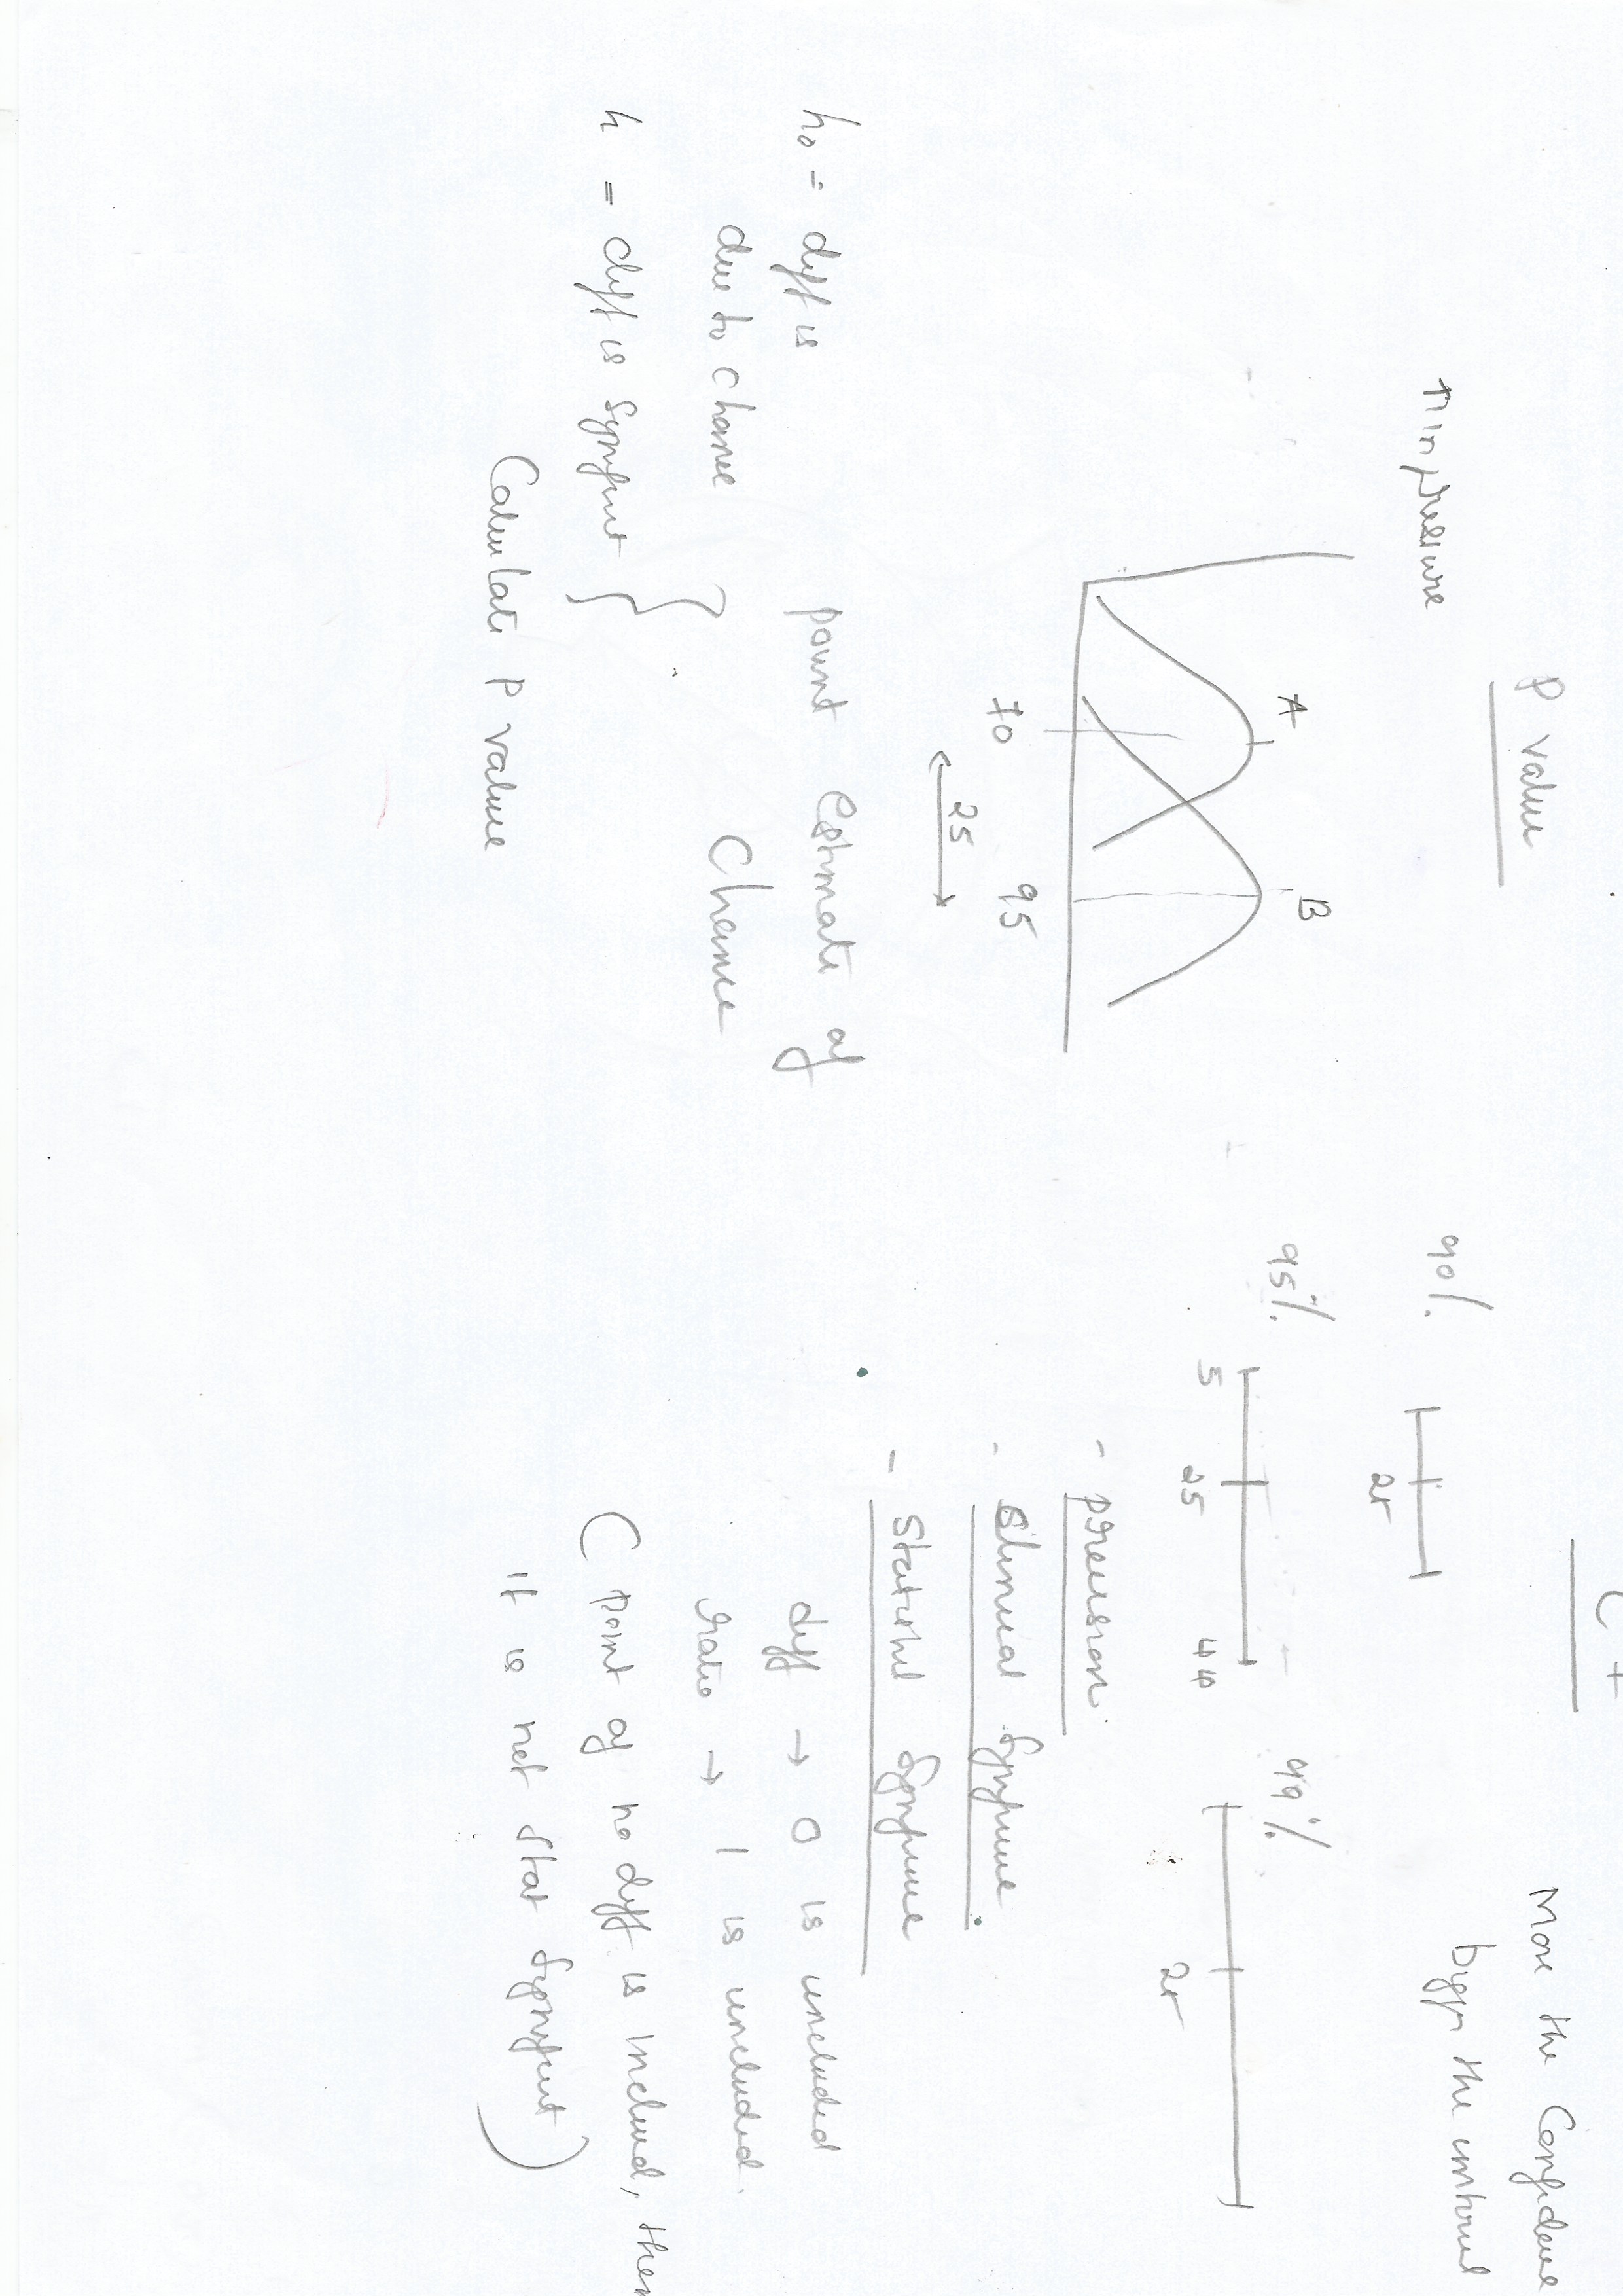 P value
Min pressure
A
B
70
95
25
h0 = diff is
due to chance
point Estimate of
Chance
h = diff is
Calculate P value
C
More the Confidence
bigger the interval
90%
25
95%
5
25
44
99%
25
- precision
- Clinical
- Statistical
diff → 0 is included
ratio → 1 is included.
( point of no diff. is included, then
it is not stat )